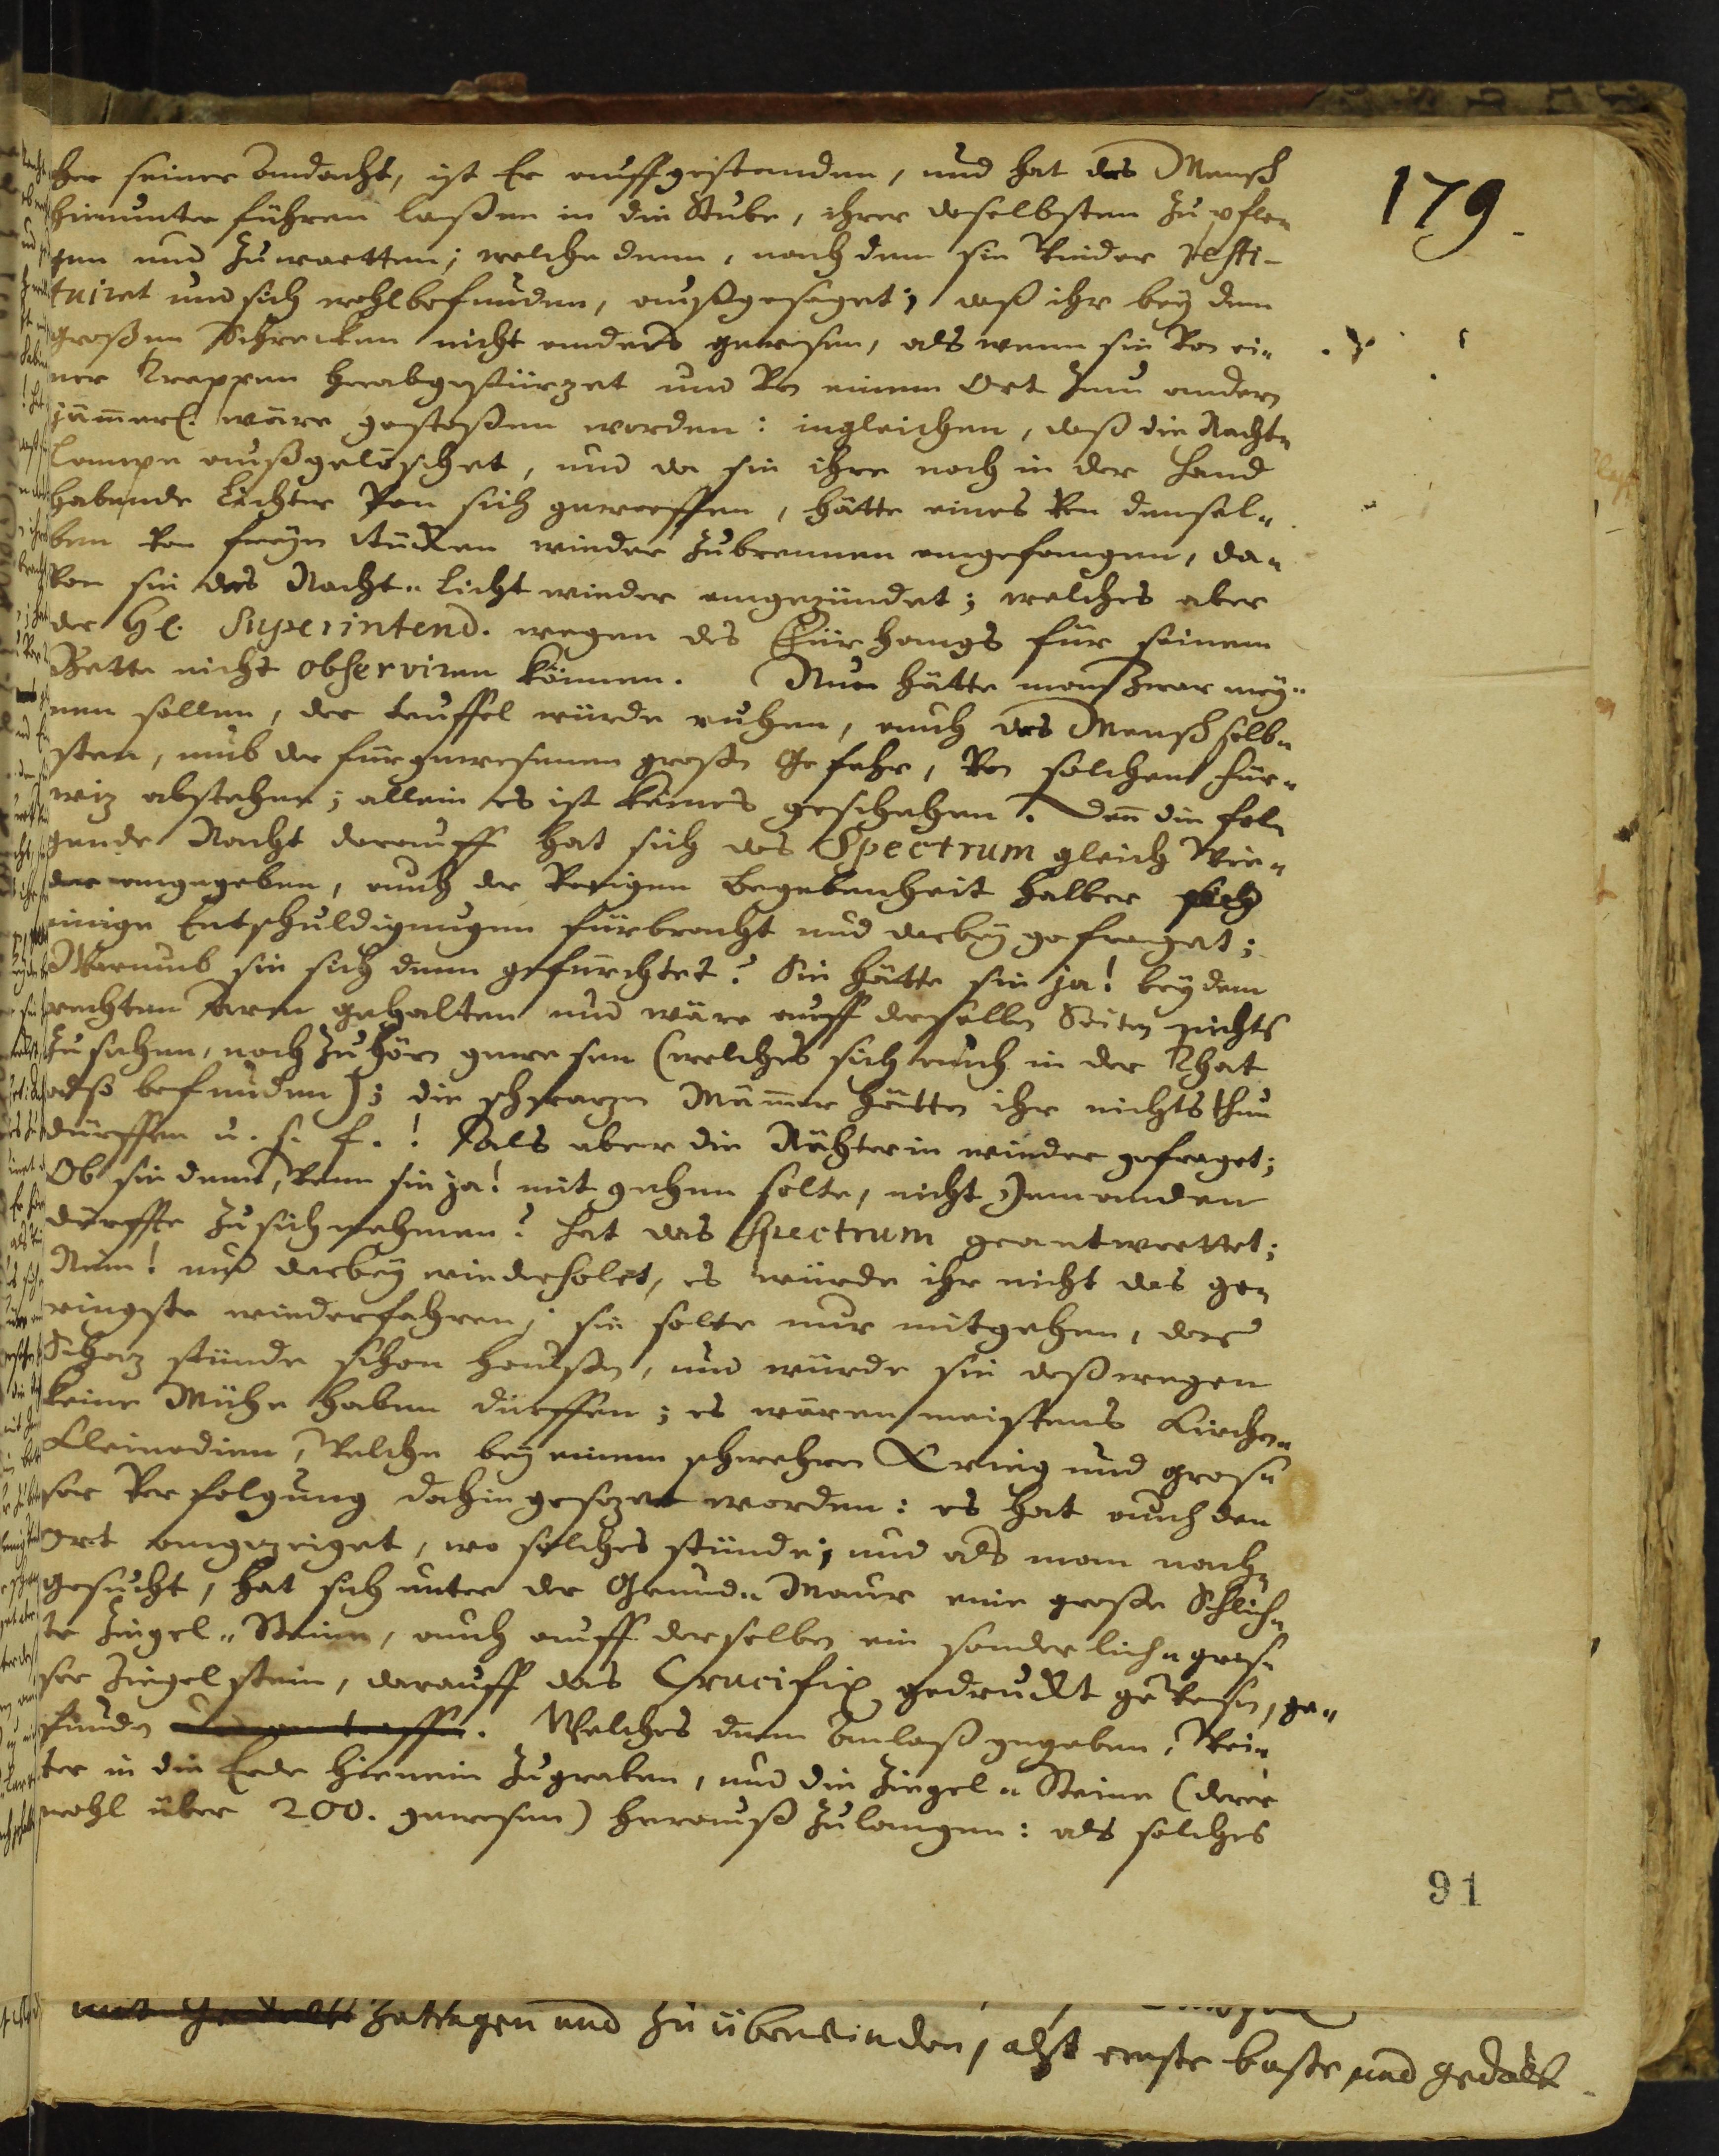 179.
cher seiner Andacht, ist Er auffgestanden, und hat das Mensch
hinunter führen laßen in die Stube, ihrer daselbsten zu pfle-
gen und zuwartten; welche denn, nach dem sie wieder resti-
tuiret und sich wohlbefunden, außgesaget; daß ihr bey dem
großen Schrecken nicht anders gewesen, als wenn sie von ei-
ner Treppen herabgestürzet und von einem Ort zum andern
jämerl. wäre gestoßen worden: ingleichen, daß die Nacht-
Lampe außgelöschet, und da sie ihre noch in der Hand
habende Lichter von sich geworffen, hätte eines von densel-
ben von freyen stücken wieder zubrennen angefangen, da-
von sie das Nacht-Licht wieder angezündet; welches aber
der Hl. Superintend. wegen des Fürhangs für seinem
Bette nicht observiren können. Nun hätte man zwar mey-
nen sollen, der teuffel würde ruhen, auch das Mensch selb-
sten, umb der fürgewesenen großen Gefahr, von solchem für-
wiz abstehen; allein es ist keines geschehen. Den die fol-
gende Nacht darauff hat sich das Spectrum gleich wie-
der angegeben, auch der vorigen begebenheit halber sich
einige Entschuldigungen fürbracht und darbey gefraget;
Warumb sie sich denn gefürchtet? Sie hätte sie ja! bey dem
rechten Arm gehalten und wäre auff derselben Seiten nichts
zusehen, noch zuhören gewesen (welches sich auch in der That
also befunden); die schwarzen Männer hätten ihr nichts thun
dürffen u. s. f.! Als aber die Nähterin wieder gefraget;
Ob sie denn, wenn sie ja! mit gehen solte, nicht Jemanden
dürffte zu sich nehmen? hat das Spectrum geantworttet;
Nein! und darbey wiederholet, es würde ihr nicht das ge-
ringste wiederfahren; sie solte nur mitgehen, der
Schaz stünde schon haußen, und würde sie deßwegen
keine Mühe haben dürffen; es wären meistens Kirchen-
Kleinodien, welche bey einem schwehren Krieg und gros-
ser Verfolgung dahin gesezet worden: es hat auch den
Ort angezeiget, wo solches stünde; und als man nach-
gesucht, hat sich unter der Grund-Maur eine große Schlich-
te Ziegel-Steine, auch auff derselben ein sonderlich-gros-
ser Ziegelstein, darauff das Crucifix gedruckt gewesen, ge-
funden. Welches denn Anlaß gegeben, wei-
ter in die Erde hienein zugraben, und die Ziegel-Steine (derer
wohl über 200. gewesen) herauß zulangen: als solches
91
zatragen und zu überwinden, alst erste baste und gedult